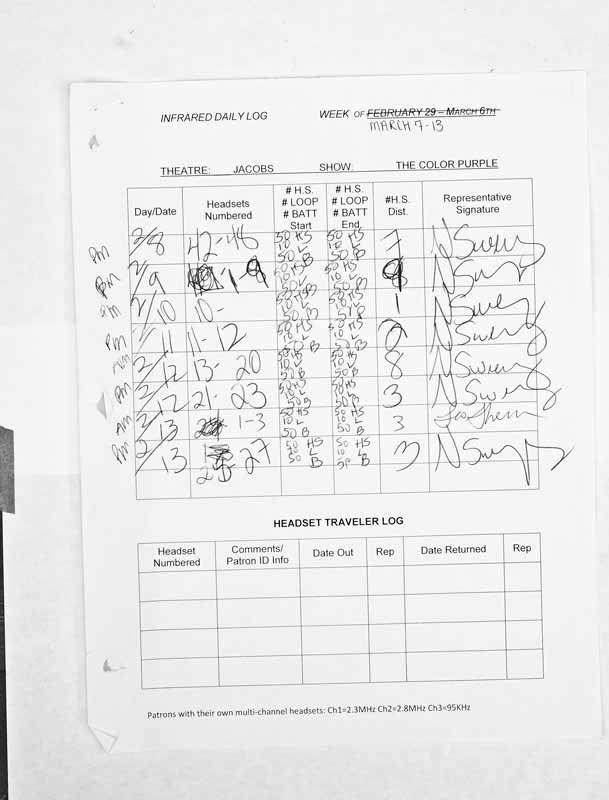 INFRARED DAILY LOG WEEK OF FEBRUARY 29 – MARCH 6TH
MARCH 7-13
THEATRE: JACOBS SHOW: THE COLOR PURPLE
Day/Date Headsets Numbered # H.S. # LOOP # BATT Start # H.S. # LOOP # BATT End #H.S. Dist. Representative Signature
PM 3/8 42-48 50 HS 10 L 50 B 50 HS 10 L 50 B 7
PM 3/9 1-9 50 HS 10 L 50 B 50 HS 10 L 50 B 9
PM 3/10 10- 50 HS 10 L 50 B 50 HS 10 L 50 B 1
PM 3/11 11-12 50 HS 10 L 50 B 50 HS 10 L 50 B 2
AM 3/12 13-20 50 HS 10 L 50 B 50 HS 10 L 50 B 8
PM 3/12 21-23 50 HS 10 L 50 B 50 HS 10 L 50 B 3
AM 3/13 1-3 50 HS 10 L 50 B 50 HS 10 L 50 B 3
PM 3/13 25 27 50 HS 10 L 50 B 50 HS 10 L 50 B 3
HEADSET TRAVELER LOG
Headset Numbered Comments/ Patron ID Info Date Out Rep Date Returned Rep
Patrons with their own multi-channel headsets: Ch1=2.3MHz Ch2=2.8MHz Ch3=95KHz